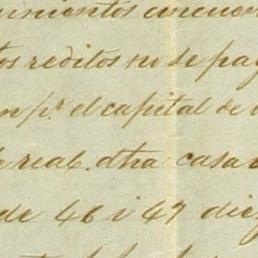 quinientos cincuen
tos reditos no se pag
n pr. el capital de
real. dha casa
de 46 i 47 diez